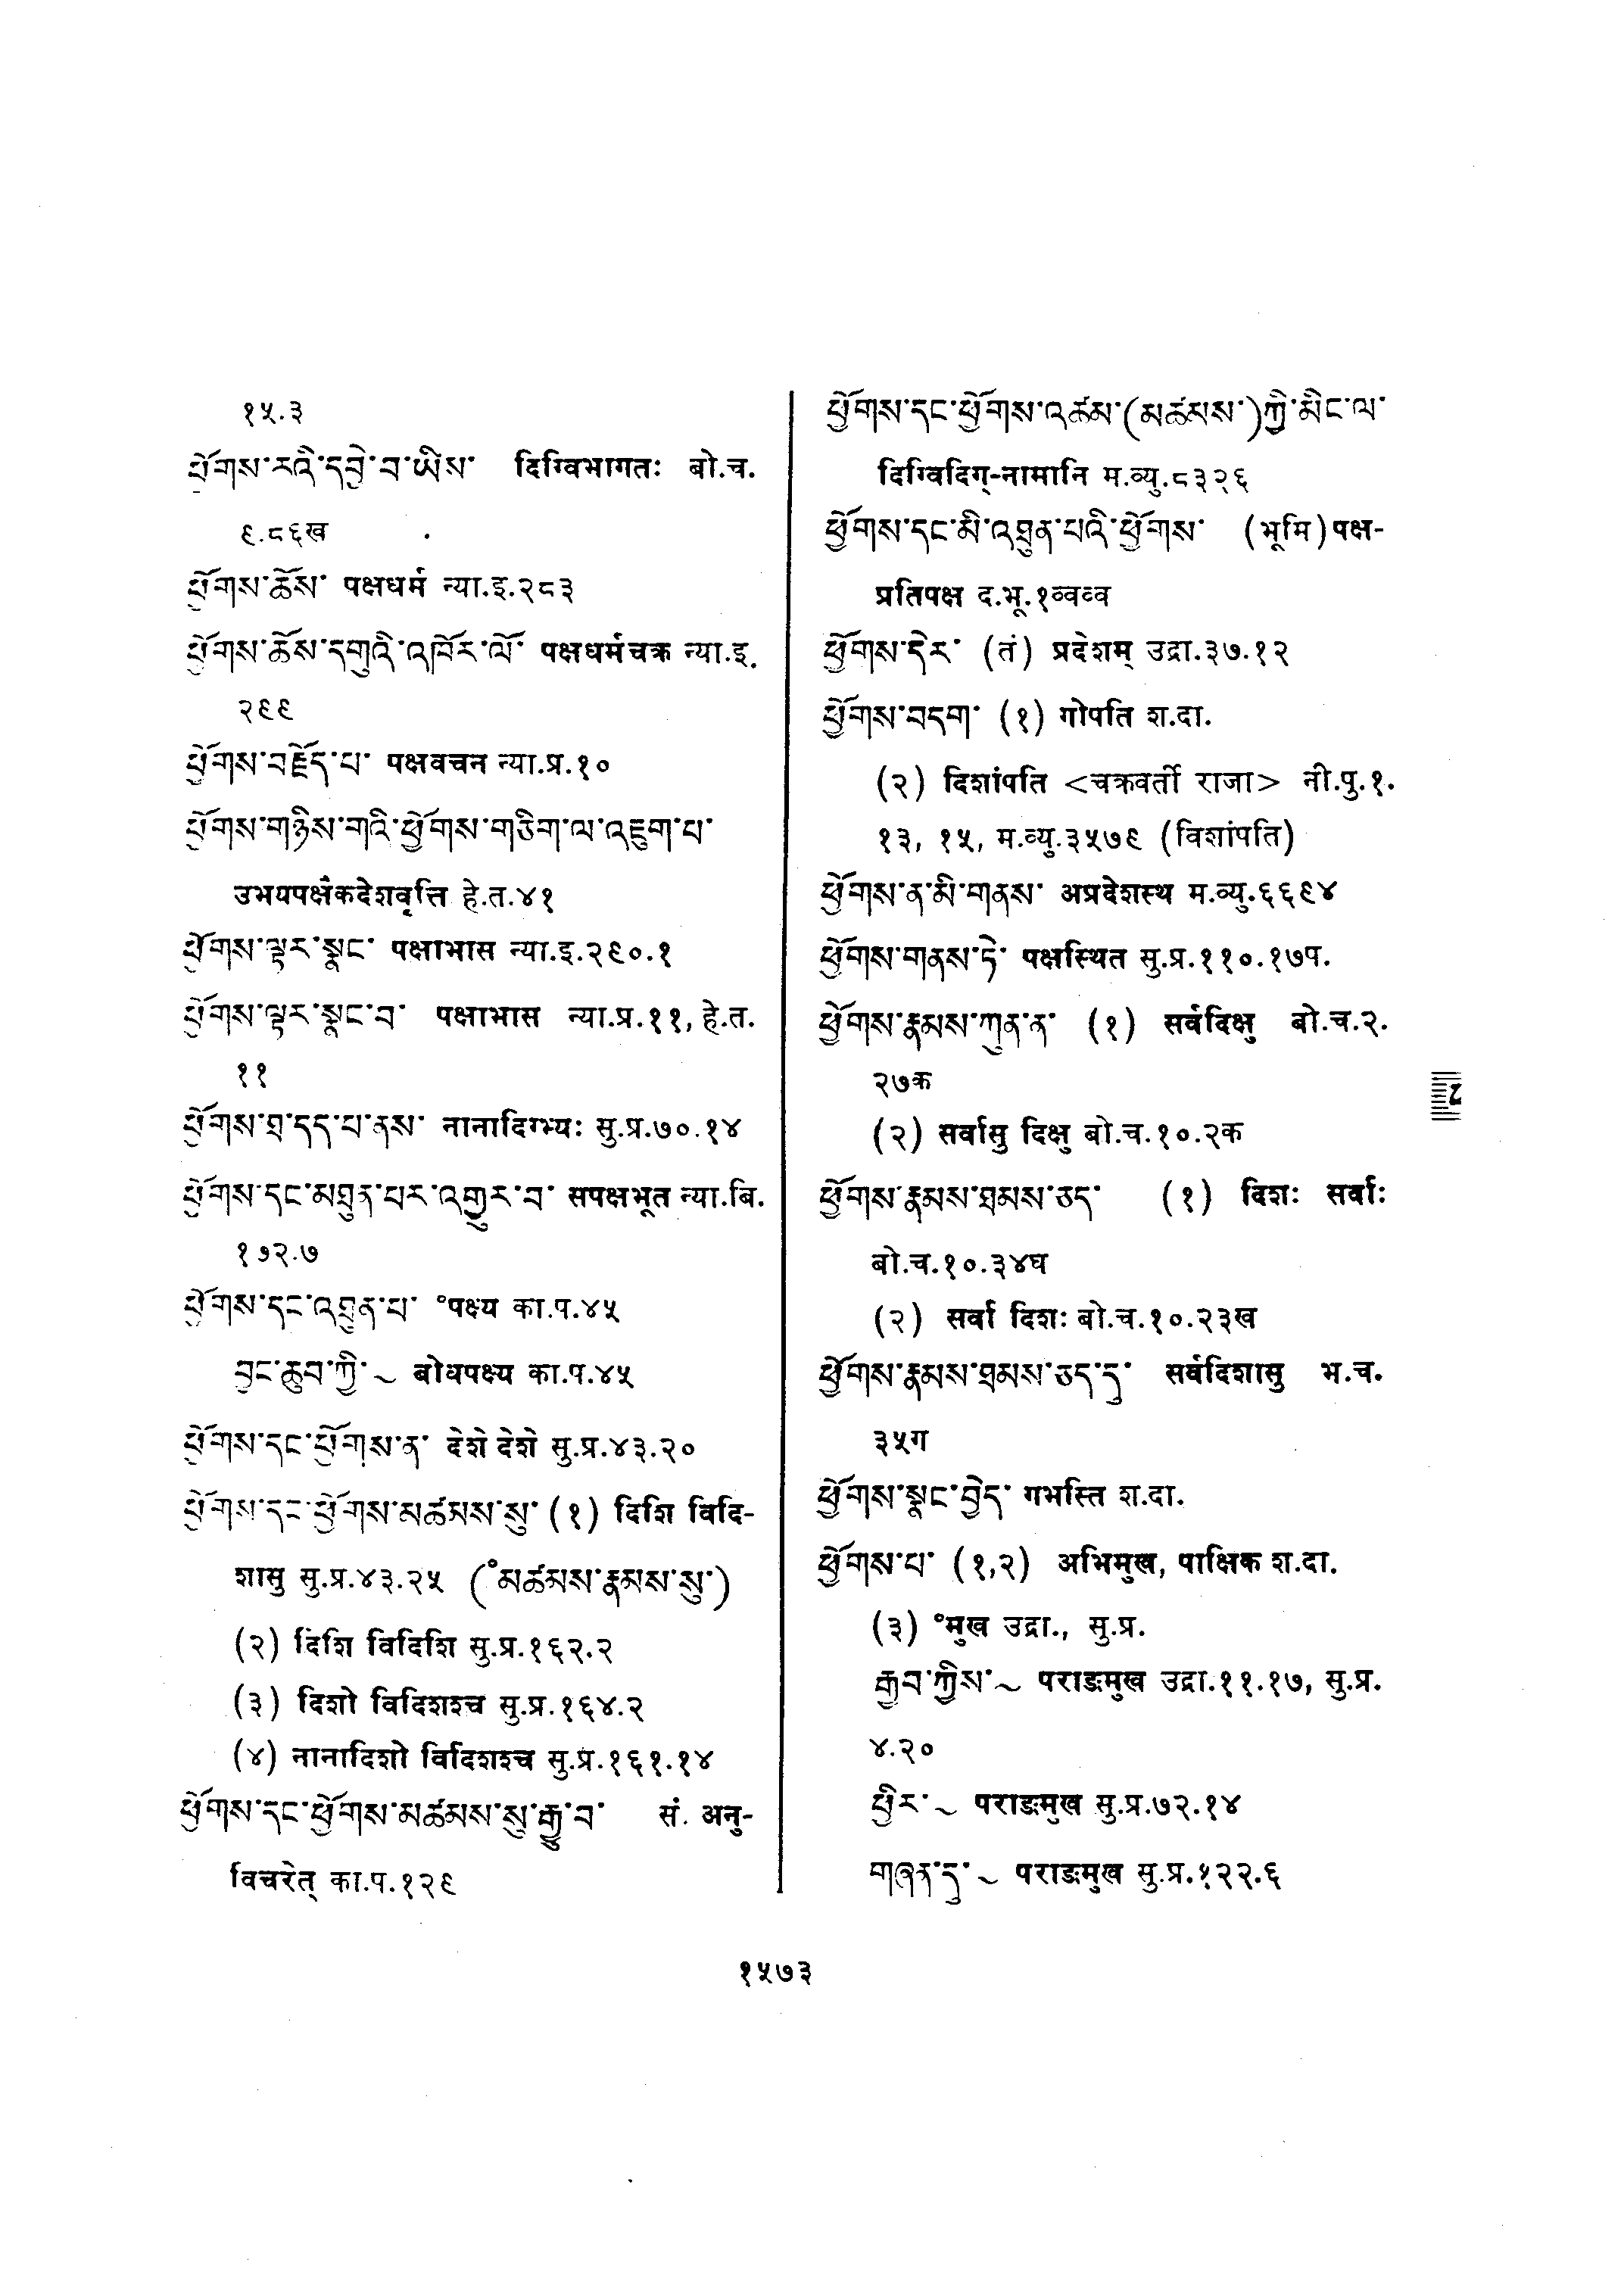 १५.३
ཕྱོགས་རའི་དབྱེ་བ་ཡིས་ दिग्विभागतः बो.च.
९.८६ख
ཕྱོགས་ཆོས་ पक्षधर्म न्या.इ.२८३
ཕྱོགས་ཆོས་དགུའི་འཁོར་ལོ་ पक्षधर्मचक्र न्या.इ.
२९९
ཕྱོགས་བརྗོད་པ་ पक्षवचन न्या.प्र.१०
ཕྱོགས་གཉིས་གའི་ཕྱོགས་གཅིག་ལ་འཇུག་པ་
उभयपक्षैकदेशवृत्ति हे.त.४१
ཕྱོགས་ལྟར་སྣང་ पक्षाभास न्या.इ.२९०.१
ཕྱོགས་ལྟར་སྣང་བ་ पक्षाभास न्या.प्र.११, हे.त.
११
ཕྱོགས་ཐ་དད་པ་ནས་ नानादिग्भ्यः सु.प्र.७०.१४
ཕྱོགས་དང་མཐུན་པར་འགྱུར་བ་ सपक्षभूत न्या.बि.
१७२.७
ཕྱོགས་དང་འཐུན་པ་ °पक्ष्य का.प.४५
བྱང་ཆུབ་ཀྱི་ ~ बोधपक्ष्य का.प.४५
ཕྱོགས་དང་ཕྱོགས་ན་ देशे देशे सु.प्र.४३.२०
ཕྱོགས་དང་ཕྱོགས་མཚམས་སུ་ (१) दिशि विदि-
शासु सु.प्र.४३.२५ (°མཚམས་རྣམས་སུ་)
(२) दिशि विदिशि सु.प्र.१६२.२
(३) दिशो विदिशश्च सु.प्र.१६४.२
(४) नानादिशो विदिशश्च सु.प्र.१६१.१४
ཕྱོགས་དང་ཕྱོགས་མཚམས་སུ་རྒྱུ་བ་ सं. अनु-
विचरेत् का.प.१२९
ཕྱོགས་དང་ཕྱོགས་འཚམ་(མཚམས་)ཀྱི་མིང་ལ་
दिग्विदिग्-नामानि म.व्यु.८३२६
ཕྱོགས་དང་མི་འཐུན་པའི་ཕྱོགས་ (भूमि) पक्ष-
प्रतिपक्ष द.भू.१व्वव्व
ཕྱོགས་དེར་ (तं) प्रदेशम् उद्रा.३७.१२
ཕྱོགས་བདག་ (१) गोपति श.दा.
(२) दिशांपति <चक्रवर्ती राजा> नी.पु.१.
१३, १५, म.व्यु.३५७९ (विशांपति)
ཕྱོགས་ན་མི་གནས་ अप्रदेशस्थ म.व्यु.६६९४
ཕྱོགས་གནས་ཏེ་ पक्षस्थित सु.प्र.११०.१७प.
ཕྱོགས་རྣམས་ཀུན་ན་ (१) सर्वदिक्षु बो.च.२.
२७क
(२) सर्वासु दिक्षु बो.च.१०.२क
ཕྱོགས་རྣམས་ཐམས་ཅད་ (१) दिशः सर्वाः
बो.च.१०.३४घ
(२) सर्वा दिशः बो.च.१०.२३ख
ཕྱོགས་རྣམས་ཐམས་ཅད་དུ་ सर्वदिशासु भ.च.
३५ग
ཕྱོགས་སྣང་བྱེད་ गभस्ति श.दा.
ཕྱོགས་པ་ (१,२) अभिमुख, पाक्षिक श.दा.
(३) °मुख उद्रा., सु.प्र.
རྒྱབ་ཀྱིས་ ~ पराङमुख उद्रा.११.१७, सु.प्र.
४.२०
ཕྱིར་ ~ पराङमुख सु.प्र.७२.१४
གཞན་དུ་ ~ पराङमुख सु.प्र.१२२.६
१५७३